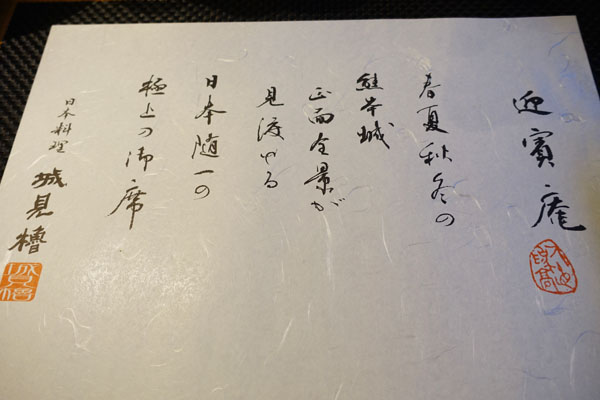 迎賓庵
春夏秋冬の
熊本城
正面全景が
見渡せる
日本随一の
極上の御席
日本料理 城見櫓